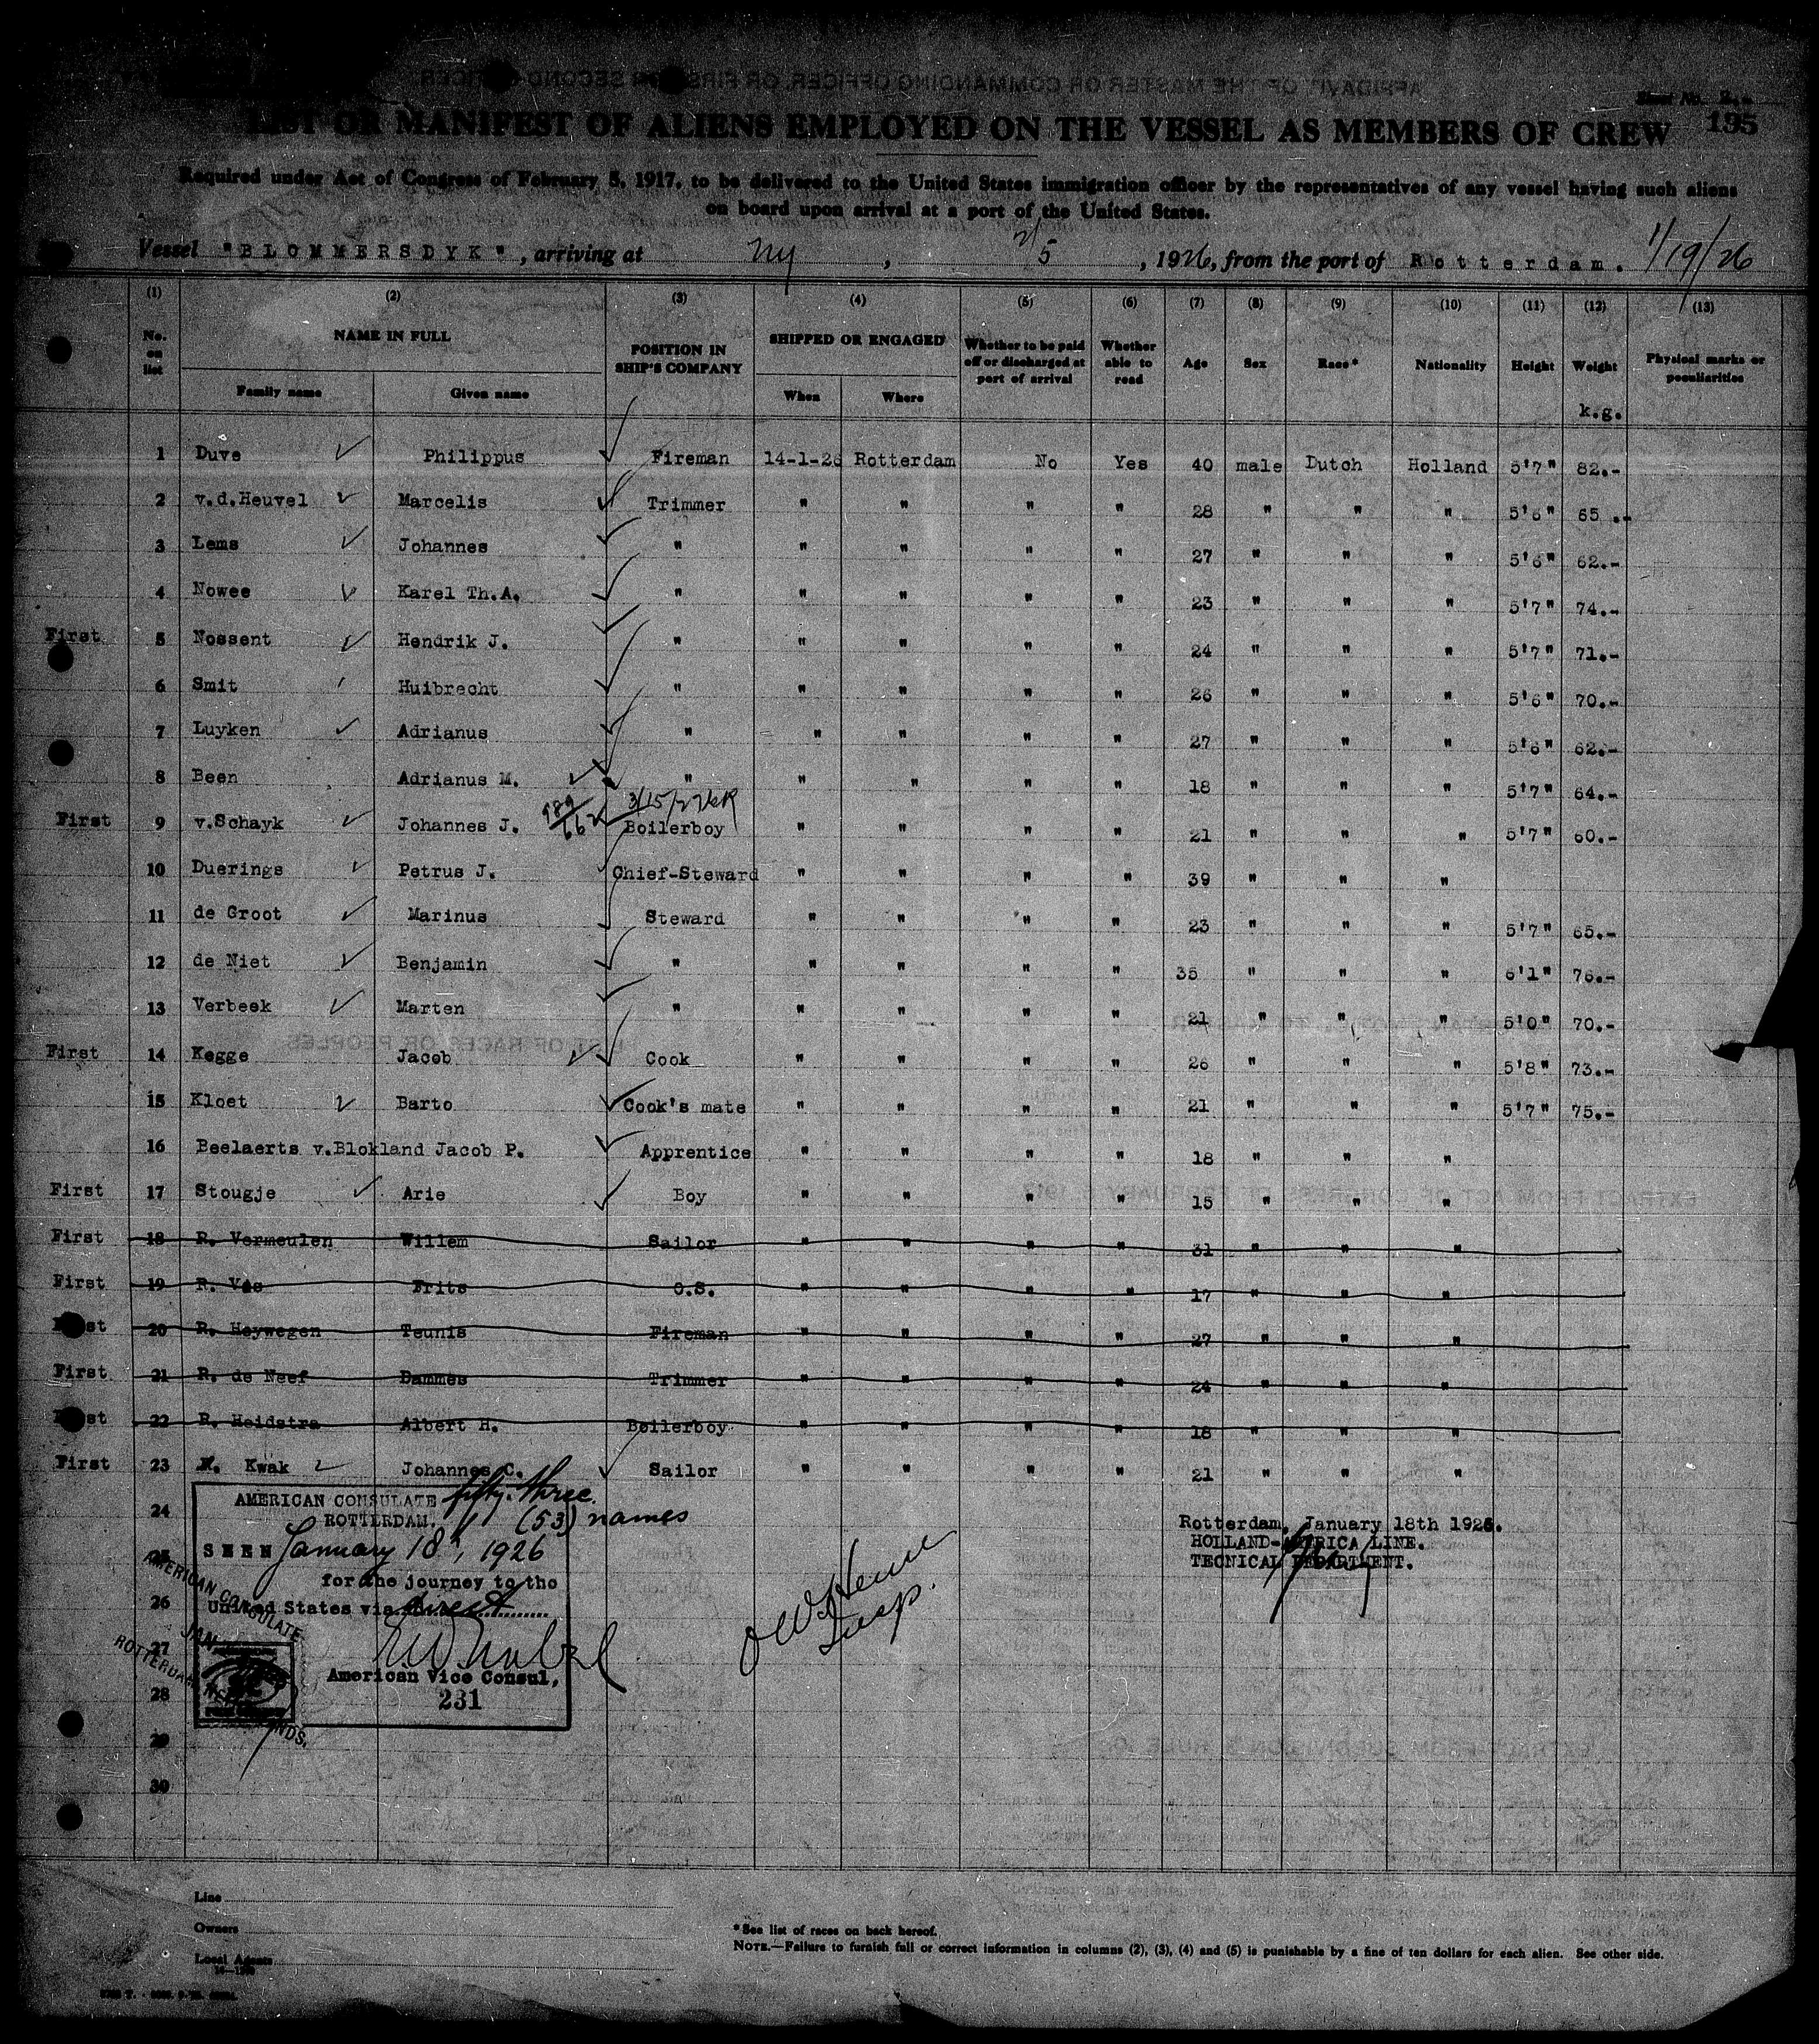 LIST OR MANIFEST OF ALIENS EMPLOYED ON THE VESSEL AS MEMBERS OF CREW 195
Required under Act of Congress of February 5, 1917, to be delivered to the United States immigration officer by the representatives of any vessel having such aliens
on board upon arrival at a port of the United States.
Vessel "BLOMMERSDYK", arriving at Ny, 2/5, 1926, from the port of Rotterdam. 1/19/26
(1) (2) (3) (4) (5) (6) (7) (8) (9) (10) (11) (12) (13)
No. on list NAME IN FULL POSITION IN SHIP'S COMPANY SHIPPED OR ENGAGED Whether to be paid off or discharged at port of arrival Whether able to read Age Sex Race* Nationality Height Weight Physical marks or peculiarities
Family name Given name When Where k.g.
1 Duve Philippus Fireman 14-1-26 Rotterdam No Yes 40 male Dutch Holland 5'7" 82.-
2 v.d.Heuvel Marcelis Trimmer " " " " 28 " " " 5'6" 65 .-
3 Lems Johannes " " " " " 27 " " " 5'6" 62.-
4 Nowee Karel Th.A. " " " " " 23 " " " 5'7" 74.-
First 5 Nossent Hendrik J. " " " " " 24 " " " 5'7" 71.-
6 Smit Huibrecht " " " " " 26 " " " 5'6" 70.-
7 Luyken Adrianus " " " " " 27 " " " 5'6" 62.-
8 Been Adrianus M. " " " " " 18 " " " 5'7" 64.-
First 9 v.Schayk Johannes J. Boilerboy " " " " 21 " " " 5'7" 60.-
10 Duerings Petrus J. Chief-Steward " " " " 39 " " "
11 de Groot Marinus Steward " " " " 23 " " " 5'7" 65.-
12 de Niet Benjamin " " " " " 35 " " " 6'1" 76.-
13 Verbeek Marten " " " " " 21 " " " 5'0" 70.-
First 14 Kegge Jacob Cook " " " " 26 " " " 5'8" 73.-
15 Kloet Barto Cook's mate " " " " 21 " " " 5'7" 75.-
16 Beelaerts v.Blokland Jacob P. Apprentice " " " " 18 " " "
First 17 Stougje Arie Boy " " " " 15 " " "
First 18 R. Vermeulen Willem Sailor " " " " 31 " " "
First 19 R. Vos Frits O.S. " " " " 17 " " "
First 20 R. Heywegen Teunis Fireman " " " " 27 " " "
First 21 R. de Neef Dammes Trimmer " " " " 24 " " "
First 22 R. Heidstra Albert H. Boilerboy " " " " 18 " " "
First 23 R. Kwak Johannes C. Sailor " " " " 21 " " "
24
AMERICAN CONSULATE fifty-three
ROTTERDAM. (53) names
SEEN January 18, 1926
for the journey to the
United States via direct
American Vice Consul,
231
AMERICAN CONSULATE
JAN
ROTTERDAM
26
27
28
29
30
Rotterdam, January 18th 1926.
HOLLAND-AMERICA LINE.
TECNICAL DEPARTMENT.
Line
Owners
Local Agents
*See list of races on back hereof.
NOTE.—Failure to furnish full or correct information in columns (2), (3), (4) and (5) is punishable by a fine of ten dollars for each alien. See other side.